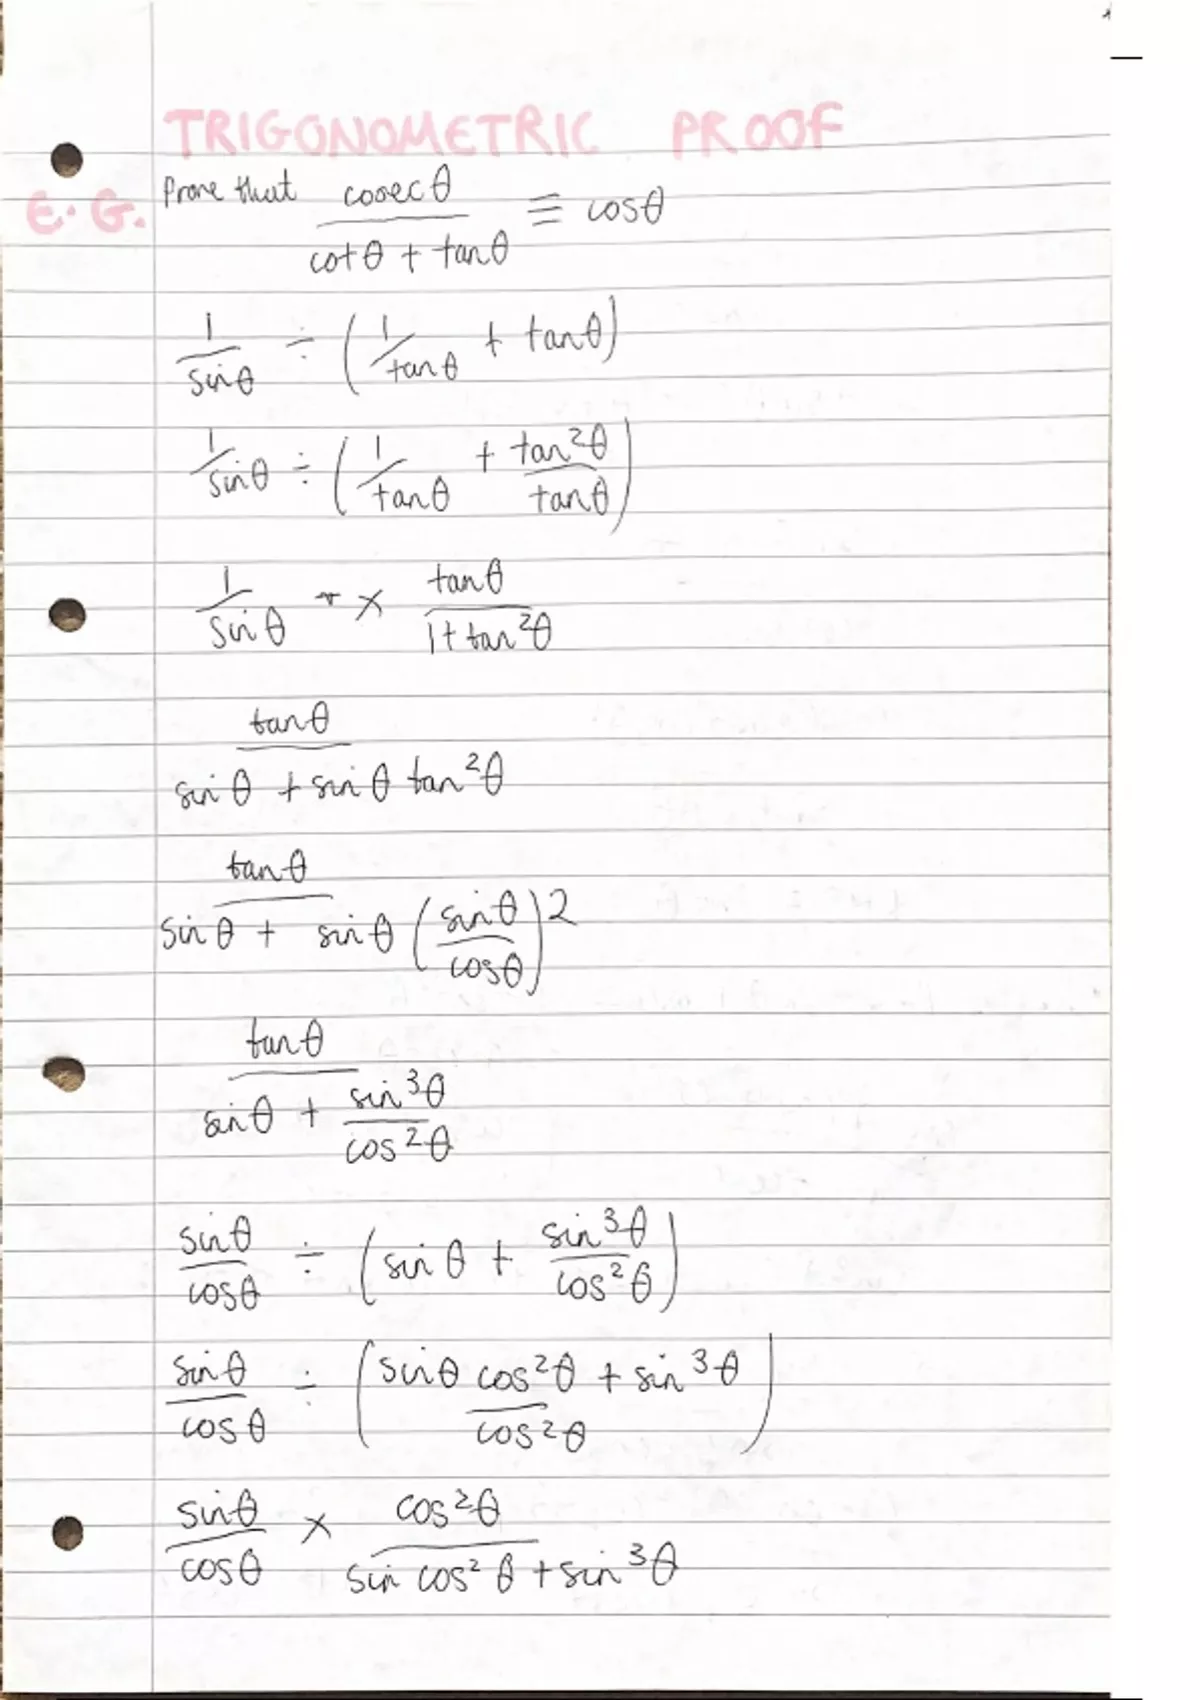 TRIGONOMETRIC PROOF
E.G. Prove that cosecθ / (cotθ + tanθ) ≡ cosθ
1/sinθ ÷ (1/tanθ + tanθ)
1/sinθ ÷ (1/tanθ + tan²θ/tanθ)
1/sinθ × tanθ/(1+tan²θ)
tanθ / (sinθ + sinθ tan²θ)
tanθ / (sinθ + sinθ (sinθ/cosθ)²)
tanθ / (sinθ + sin³θ/cos²θ)
sinθ/cosθ ÷ (sinθ + sin³θ/cos²θ)
sinθ/cosθ ÷ ((sinθ cos²θ + sin³θ)/cos²θ)
sinθ/cosθ × cos²θ/(sin cos²θ + sin³θ)